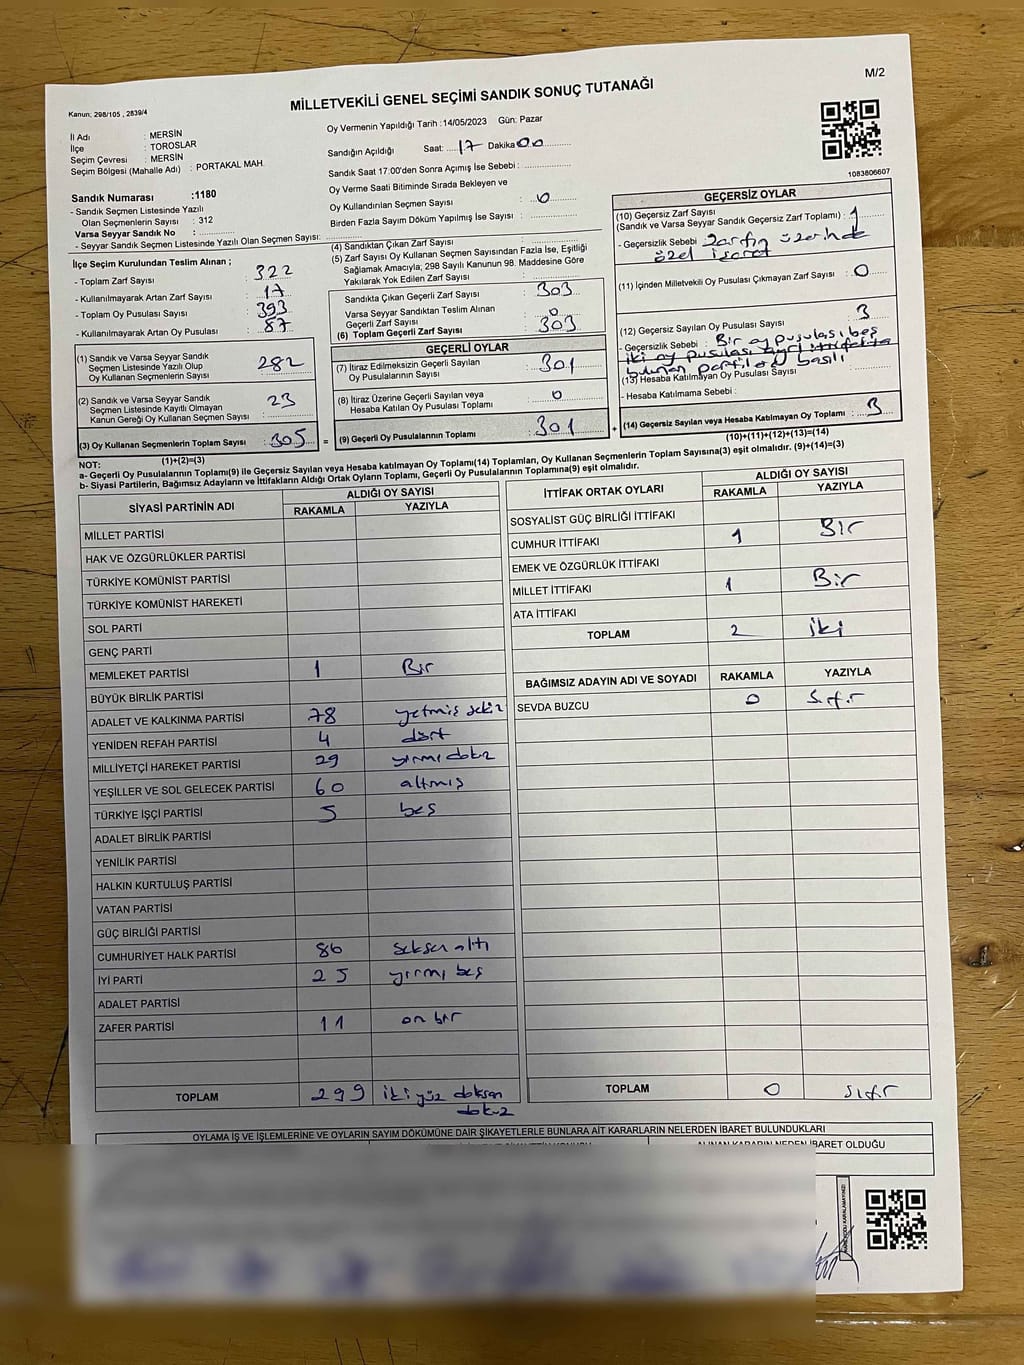 M/2
MİLLETVEKİLİ GENEL SEÇİMİ SANDIK SONUÇ TUTANAĞI
Kanun: 298/105 , 2839/4
İl Adı : MERSİN
İlçe : TOROSLAR
Seçim Çevresi : MERSİN
Seçim Bölgesi (Mahalle Adı) : PORTAKAL MAH.
Sandık Numarası :1180
- Sandık Seçmen Listesinde Yazılı
Olan Seçmenlerin Sayısı : 312
Varsa Seyyar Sandık No :
- Seyyar Sandık Seçmen Listesinde Yazılı Olan Seçmen Sayısı:
Oy Vermenin Yapıldığı Tarih :14/05/2023 Gün: Pazar
Sandığın Açıldığı Saat: 17 Dakika 00
Sandık Saat 17:00'den Sonra Açımış İse Sebebi :
Oy Verme Saati Bitiminde Sırada Bekleyen ve
Oy Kullandırılan Seçmen Sayısı : 0
Birden Fazla Sayım Döküm Yapılmış İse Sayısı :
1083806607
İlçe Seçim Kurulundan Teslim Alınan ;
- Toplam Zarf Sayısı : 322
- Kullanılmayarak Artan Zarf Sayısı : 17
- Toplam Oy Pusulası Sayısı : 393
- Kullanılmayarak Artan Oy Pusulası : 87
(1) Sandık ve Varsa Seyyar Sandık
Seçmen Listesinde Yazılı Olup
Oy Kullanan Seçmenlerin Sayısı : 282
(2) Sandık ve Varsa Seyyar Sandık
Seçmen Listesinde Kayıtlı Olmayan
Kanun Gereği Oy Kullanan Seçmen Sayısı : 23
(3) Oy Kullanan Seçmenlerin Toplam Sayısı : 305 =
(1)+(2)=(3)
(4) Sandıktan Çıkan Zarf Sayısı :
(5) Zarf Sayısı Oy Kullanan Seçmen Sayısından Fazla İse, Eşitliği
Sağlamak Amacıyla, 298 Sayılı Kanunun 98. Maddesine Göre
Yakılarak Yok Edilen Zarf Sayısı :
Sandıkta Çıkan Geçerli Zarf Sayısı : 303
Varsa Seyyar Sandıktan Teslim Alınan
Geçerli Zarf Sayısı : 0
(6) Toplam Geçerli Zarf Sayısı : 303
GEÇERLİ OYLAR
(7) İtiraz Edilmeksizin Geçerli Sayılan
Oy Pusulalarının Sayısı : 301
(8) İtiraz Üzerine Geçerli Sayılan veya
Hesaba Katılan Oy Pusulası Toplamı : 0
(9) Geçerli Oy Pusulalarının Toplamı : 301 +
GEÇERSİZ OYLAR
(10) Geçersiz Zarf Sayısı
(Sandık ve Varsa Seyyar Sandık Geçersiz Zarf Toplamı) : 1
- Geçersizlik Sebebi : Zarfın üzerinde
özel işaret
(11) İçinden Milletvekili Oy Pusulası Çıkmayan Zarf Sayısı : 0
(12) Geçersiz Sayılan Oy Pusulası Sayısı : 3
- Geçersizlik Sebebi : Bir oy pusulası beş
iki oy pusulası ayrı ittifakta
bulunan partilere basılı
(13) Hesaba Katılmayan Oy Pusulası Sayısı :
- Hesaba Katılmama Sebebi :
(14) Geçersiz Sayılan veya Hesaba Katılmayan Oy Toplamı : 3
(10)+(11)+(12)+(13)=(14)
NOT:
a- Geçerli Oy Pusulalarının Toplamı(9) ile Geçersiz Sayılan veya Hesaba katılmayan Oy Toplamı(14) Toplamları, Oy Kullanan Seçmenlerin Toplam Sayısına(3) eşit olmalıdır. (9)+(14)=(3)
b- Siyasi Partilerin, Bağımsız Adayların ve İttifakların Aldığı Ortak Oyların Toplamı, Geçerli Oy Pusulalarının Toplamına(9) eşit olmalıdır.
SİYASİ PARTİNİN ADI ALDIĞI OY SAYISI
RAKAMLA YAZIYLA
MİLLET PARTİSİ
HAK VE ÖZGÜRLÜKLER PARTİSİ
TÜRKİYE KOMÜNİST PARTİSİ
TÜRKİYE KOMÜNİST HAREKETİ
SOL PARTİ
GENÇ PARTİ
MEMLEKET PARTİSİ 1 Bir
BÜYÜK BİRLİK PARTİSİ
ADALET VE KALKINMA PARTİSİ 78 yetmiş sekiz
YENİDEN REFAH PARTİSİ 4 dört
MİLLİYETÇİ HAREKET PARTİSİ 29 yirmi dokuz
YEŞİLLER VE SOL GELECEK PARTİSİ 60 altmış
TÜRKİYE İŞÇİ PARTİSİ 5 beş
ADALET BİRLİK PARTİSİ
YENİLİK PARTİSİ
HALKIN KURTULUŞ PARTİSİ
VATAN PARTİSİ
GÜÇ BİRLİĞİ PARTİSİ
CUMHURİYET HALK PARTİSİ 86 seksen altı
İYİ PARTİ 25 yirmi beş
ADALET PARTİSİ
ZAFER PARTİSİ 11 on bir
TOPLAM 299 iki yüz doksan
dokuz
İTTİFAK ORTAK OYLARI ALDIĞI OY SAYISI
RAKAMLA YAZIYLA
SOSYALİST GÜÇ BİRLİĞİ İTTİFAKI
CUMHUR İTTİFAKI 1 Bir
EMEK VE ÖZGÜRLÜK İTTİFAKI
MİLLET İTTİFAKI 1 Bir
ATA İTTİFAKI
TOPLAM 2 iki
BAĞIMSIZ ADAYIN ADI VE SOYADI RAKAMLA YAZIYLA
SEVDA BUZCU 0 Sıfır
TOPLAM 0 sıfır
OYLAMA İŞ VE İŞLEMLERİNE VE OYLARIN SAYIM DÖKÜMÜNE DAİR ŞİKAYETLERLE BUNLARA AİT KARARLARIN NELERDEN İBARET BULUNDUKLARI
ALINAN KARARIN NEDEN İBARET OLDUĞU